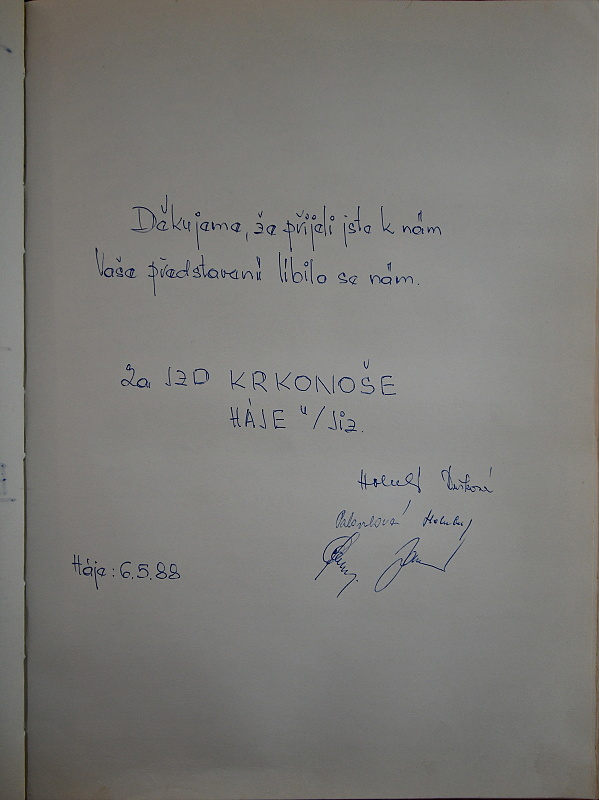 Děkujeme, že přijeli jste k nám
Vaše představení líbilo se nám.
Za JZD KRKONOŠE
HÁJE n/Jiz.
Háje: 6.5.88